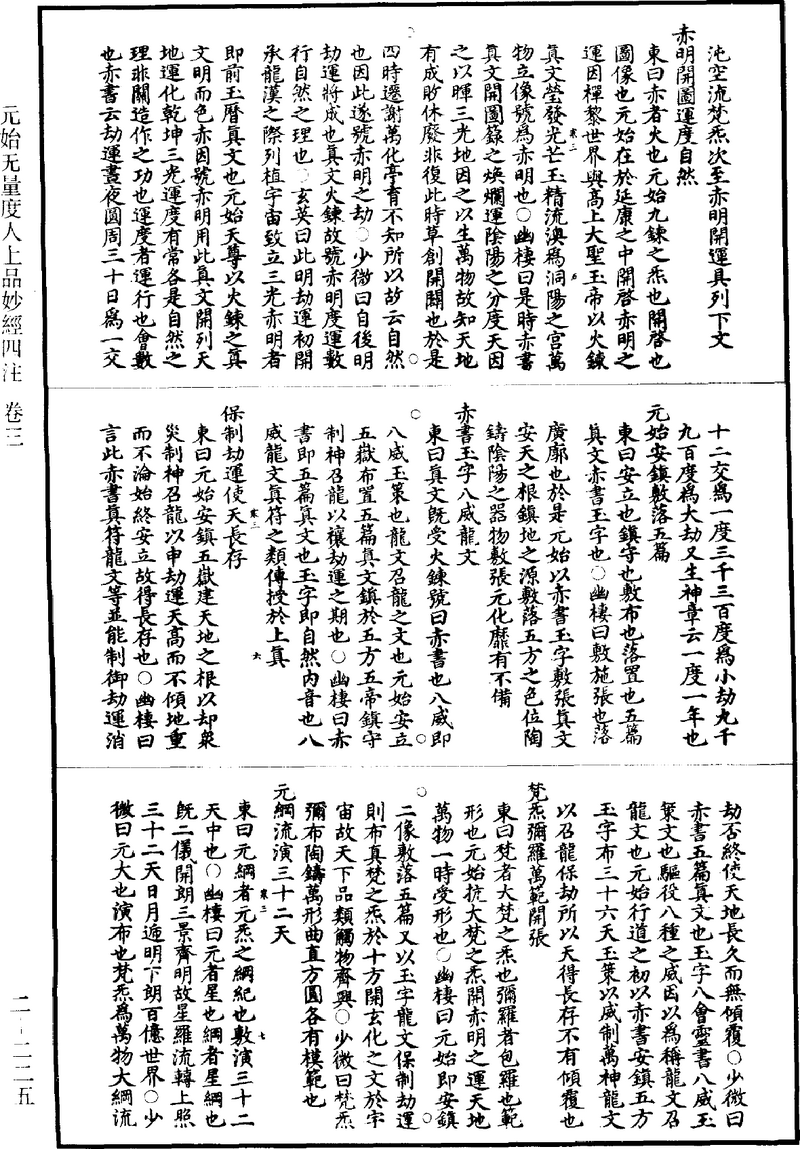 沌空流梵炁次至赤明開運具列下文
赤明開圖運度自然
東曰赤者火也元始九鍊之炁也開啓也
圖像也元始在於延康之中開啓赤明之
運因禪黎世界與高上大聖玉帝以火鍊
真文瑩發光芒玉精流澳爲洞陽之宮萬
物立像號爲赤明也○幽棲曰是時赤書
真文開圖籙之煥爛運陰陽之分度天因
之以暉三光地因之以生萬物故知天地
有成敗休廢非復此時草創開闢也於是
四時遷謝萬化亭育不知所以故云自然
也因此遂號赤明之劫○少微曰自後明
劫運將成也真文火鍊故號赤明度運數
行自然之理也○玄英曰此明劫運初開
承龍漢之際列植宇宙致立三光赤明者
即前玉曆真文也元始天尊以火鍊之真
文明而色赤因號赤明用此真文開列天
地運化乾坤三光運度有常各是自然之
理非關造作之功也運度者運行也會數
也赤書云劫運晝夜圓周三十日爲一交
十二交爲一度三千三百度爲小劫九千
九百度爲大劫又生神章云一度一年也
元始安鎮敷落五篇
東曰安立也鎮守也敷布也落置也五篇
真文赤書玉字也○幽棲曰敷施張也落
廣廓也於是元始以赤書玉字敷張真文
安天之根鎮地之源敷落五方之色位陶
鑄陰陽之器物敷張元化靡有不備
赤書玉字八威龍文
東曰真文既受火鍊號曰赤書也八威即
八威玉策也龍文召龍之文也元始安立
五嶽布置五篇真文鎮於五方五帝鎮守
制神召龍以禳劫運之期也○幽棲曰赤
書即五篇真文也玉字即自然内音也八
威龍文真符之類傳授於上真
保制劫運使天長存
東曰元始安鎮五嶽建天地之根以却衆
災制神召龍以申劫運天高而不傾地重
而不淪始終安立故得長存也○幽棲曰
言此赤書真符龍文等並能制御劫運消
劫否終使天地長久而無傾覆○少微曰
赤書五篇真文也玉字八會靈書八威玉
策文也驅役八種之威因以爲稱龍文召
龍文也元始行道之初以赤書安鎮五方
玉字布三十六天玉策以威制萬神龍文
以召龍保劫所以天得長存不有傾覆也
梵炁彌羅萬範開張
東曰梵者大梵之炁也彌羅者包羅也範
形也元始抗大梵之炁開赤明之運天地
萬物一時受形也○幽棲曰元始即安鎮
二像敷落五篇又以玉字龍文保制劫運
則布真梵之炁於十方開玄化之文於宇
宙故天下品類觸物齊興○少微曰梵炁
彌布陶鑄萬形曲直方圓各有模範也
元綱流演三十二天
東曰元綱者元炁之綱紀也敷演三十二
天中也○幽棲曰元者星也綱者星綱也
既二儀開朗三景齊明故星羅流轉上照
三十二天日月遞明下朗百億世界○少
微曰元大也演布也梵炁爲萬物大綱流
元始无量度人上品妙經四注 卷三
二－二二五